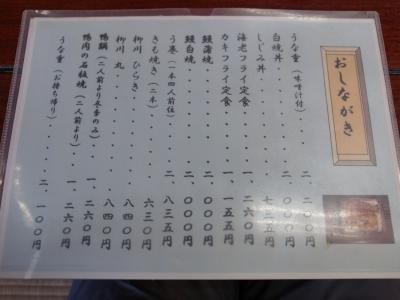 おしながき
うな重（味噌汁付）・・二、二〇〇円
白焼丼・・・・・二、〇〇〇円
しじみ丼・・・・・七三五円
海老フライ定食・・・一、二六〇円
カキフライ定食・・・一、一五五円
鰻蒲焼・・・・・二、〇〇〇円
鰻白焼・・・・・二、〇〇〇円
う巻（一本四人前位）・・二、八三五円
きも焼き（二本）・・・・六三〇円
柳川ひらき・・・・・八四〇円
柳川丸・・・・・八四〇円
鴨鍋（二人前より冬季のみ）・・一、二六〇円
鴨肉の石板焼（二人前より）・・一、二六〇円
うな重（お持ち帰り）・・・・二、一〇〇円